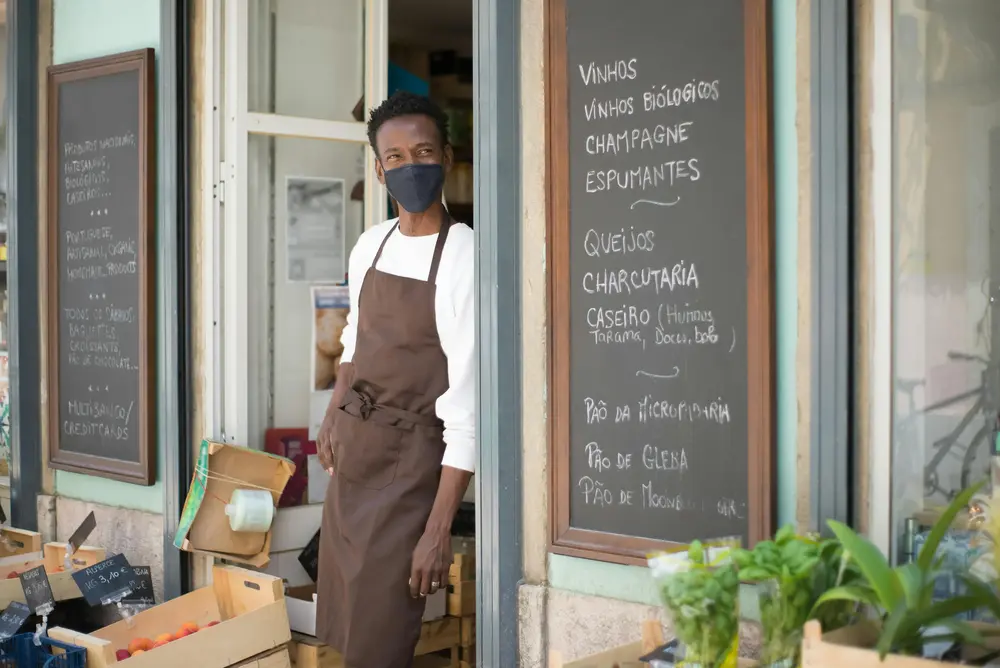 PRODUTOS NACIONAIS,
ARTESANAIS,
BIOLÓGICOS,
CASEIROS...
PORTUGUESE,
ARTISANAL, ORGANIC,
HOMEMADE... PRODUCTS
TODOS OS SÁBADOS:
BAGUETTES,
CROISSANTS,
PÃO DE CHOCOLATE...
MULTIBANCO/
CREDIT CARDS
VINHOS
VINHOS BIÓLOGICOS
CHAMPAGNE
ESPUMANTES
QUEIJOS
CHARCUTARIA
CASEIRO (HUMMUS,
TARAMA, DOCES, BOLOS)
PÃO DA MICROPADARIA
PÃO DE GLEBA
PÃO DE
ALPERCE
KG 3,10€